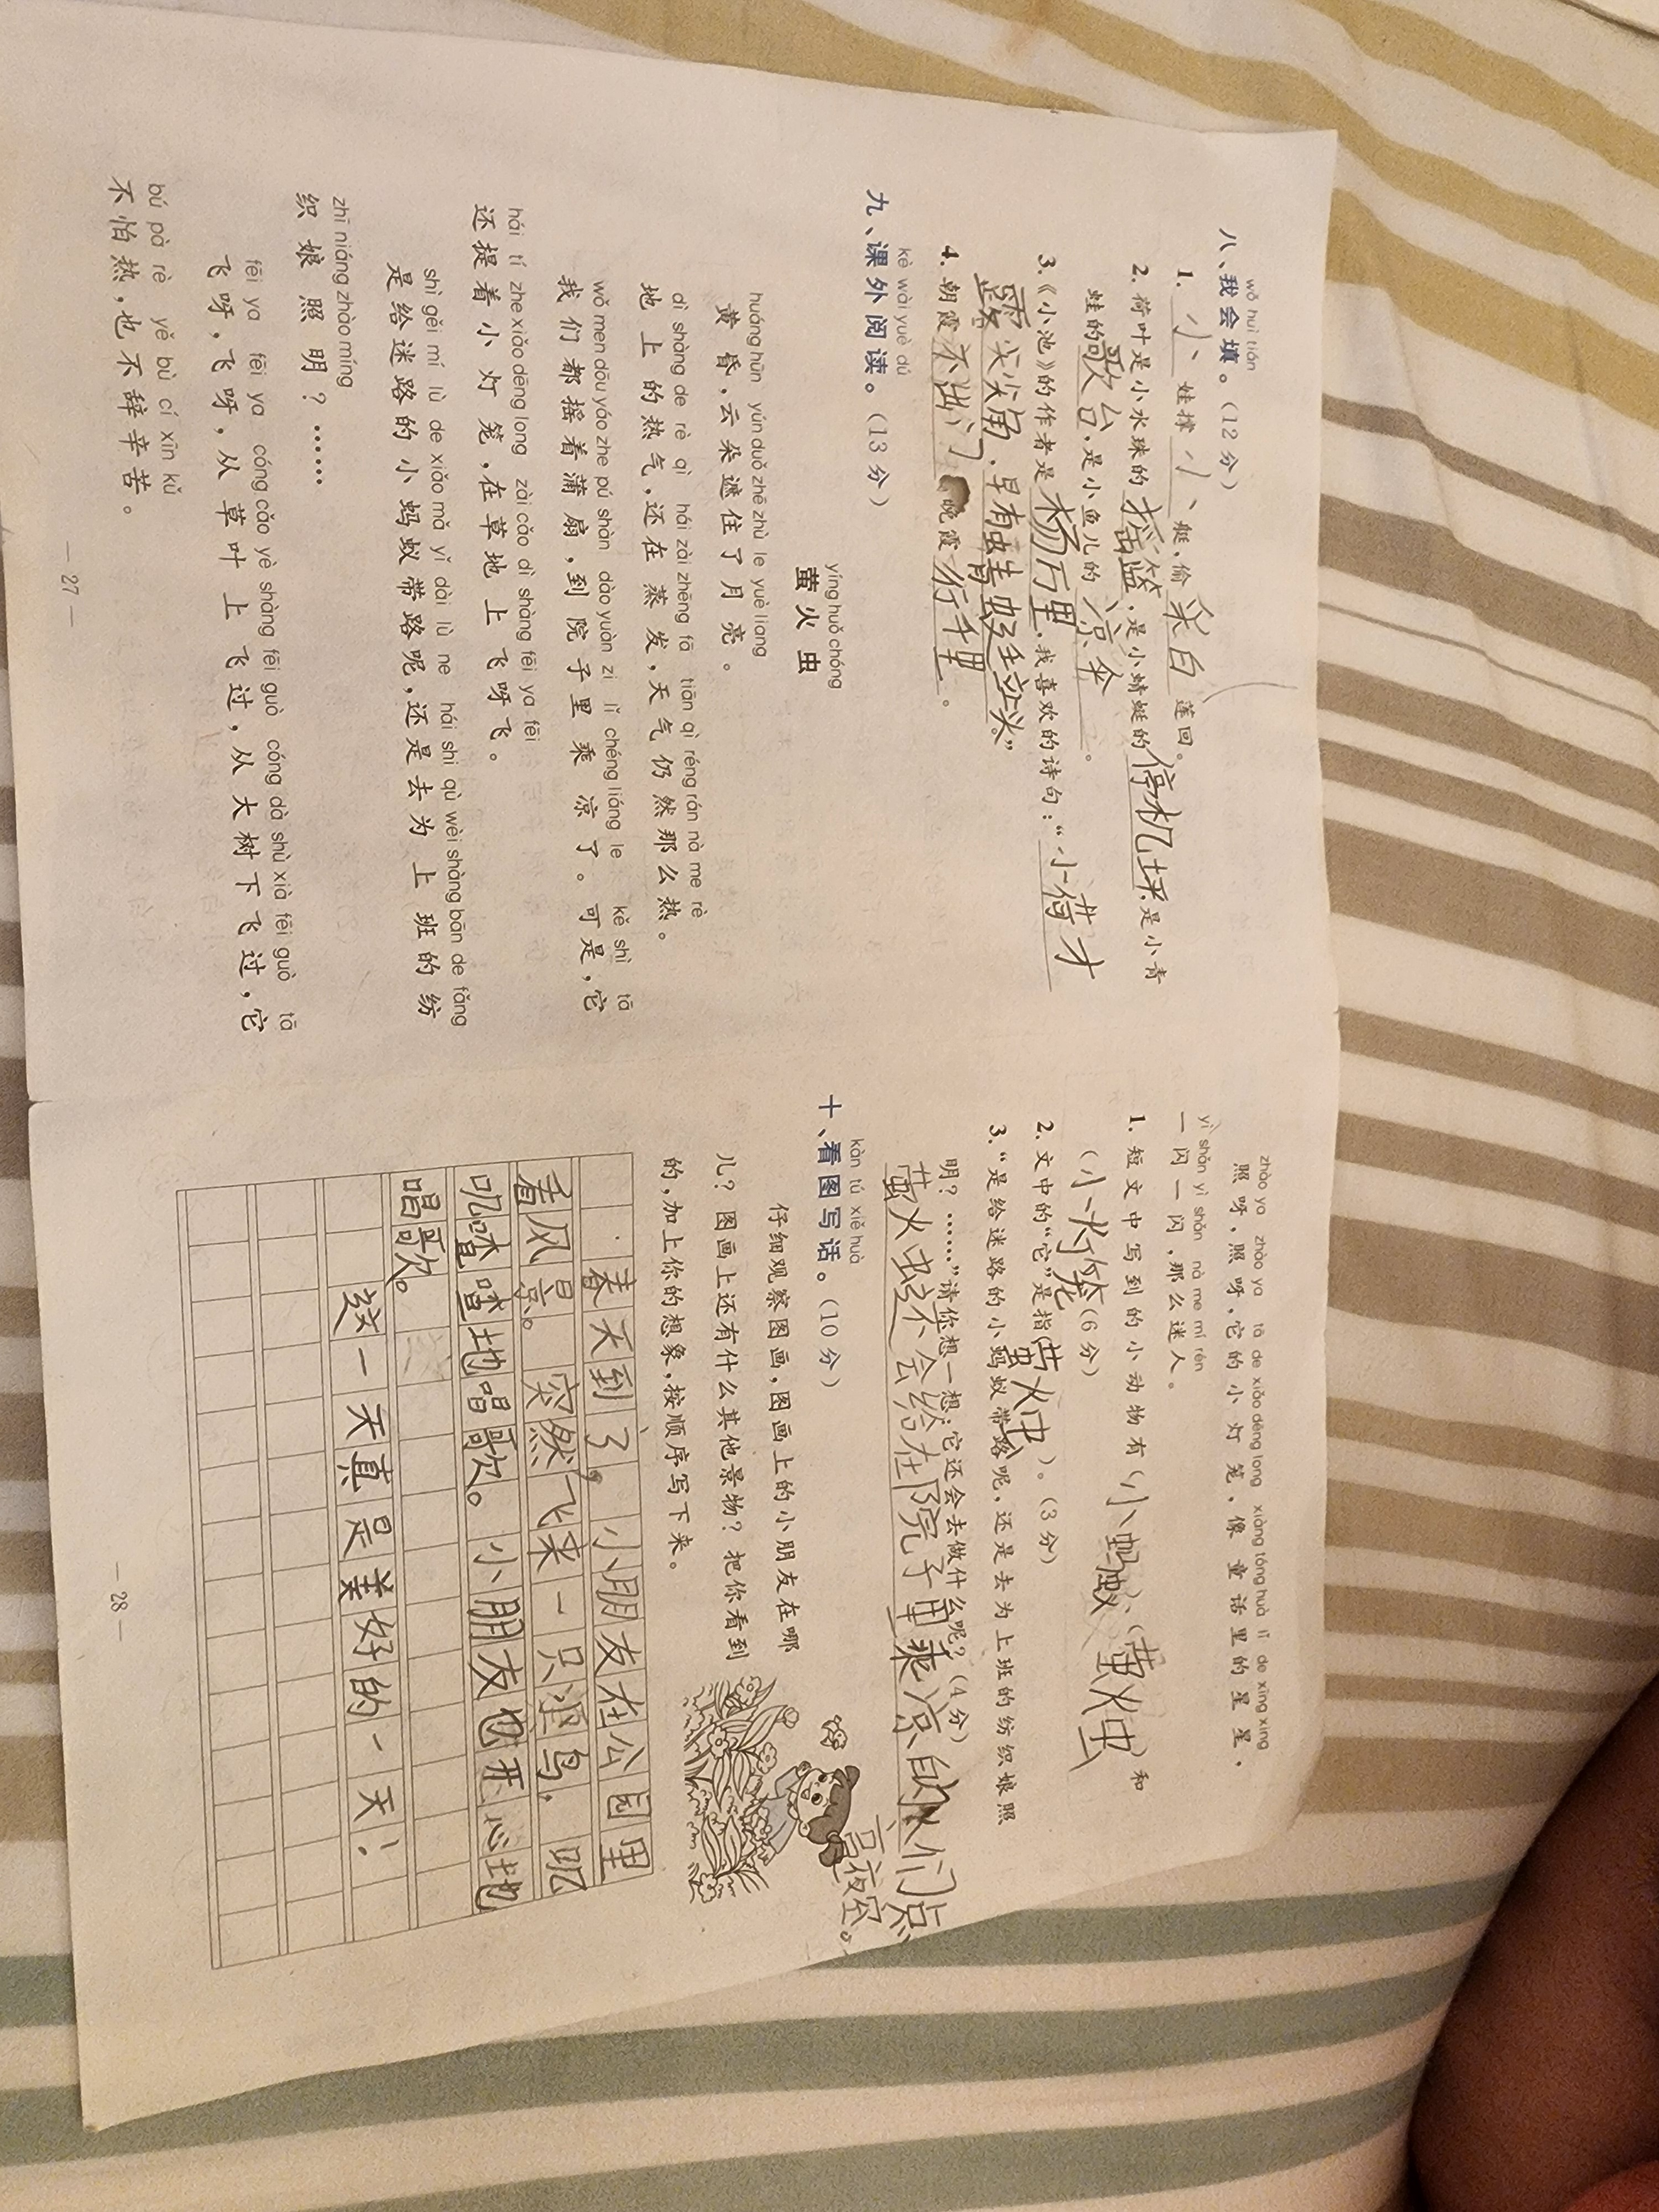 wǒ huì tián
八、我会填。(12分)
1. 小 娃撑 小 艇,偷 采白 莲回。
2. 荷叶是小水珠的 摇篮 ,是小蜻蜓的 停机坪 ,是小青
蛙的 歌台 ,是小鱼儿的 凉伞 。
3.《小池》的作者是 杨万里 ,我喜欢的诗句:“ 小荷才
露尖尖角,早有蜻蜓立上头。”
4. 朝霞 不出门 ,晚霞 行千里 。
kè wài yuè dú
九、课外阅读。(13分)
yíng huǒ chóng
萤火虫
huáng hūn yún duǒ zhē zhù le yuè liang
黄昏,云朵遮住了月亮。
dì shàng de rè qì hái zài zhēng fā tiān qì réng rán nà me rè
地上的热气,还在蒸发,天气仍然那么热。
wǒ men dōu yáo zhe pú shàn dào yuàn zi lǐ chéng liáng le kě shì tā
我们都摇着蒲扇,到院子里乘凉了。可是,它
hái tí zhe xiǎo dēng long zài cǎo dì shàng fēi ya fēi
还提着小灯笼,在草地上飞呀飞。
shì gěi mí lù de xiǎo mǎ yǐ dài lù ne hái shi qù wèi shàng bān de fǎng
是给迷路的小蚂蚁带路呢,还是去为上班的纺
zhī niáng zhào míng
织娘照明?……
fēi ya fēi ya cóng cǎo yè shàng fēi guò cóng dà shù xià fēi guò tā
飞呀,飞呀,从草叶上飞过,从大树下飞过,它
bú pà rè yě bù cí xīn kǔ
不怕热,也不辞辛苦。
— 27 —
zhào ya zhào ya tā de xiǎo dēng long xiàng tóng huà lǐ de xīng xing
照呀,照呀,它的小灯笼,像童话里的星星,
yì shǎn yì shǎn nà me mí rén
一闪一闪,那么迷人。
1. 短文中写到的小动物有( 小蚂蚁 )、( 萤火虫 )和
( 小灯笼 )(6分)
2. 文中的“它”是指( 萤火虫 )。(3分)
3.“是给迷路的小蚂蚁带路呢,还是去为上班的纺织娘照
明?……”请你想一想:它还会去做什么呢?(4分)
萤火虫还会给在院子里乘凉的人们点
亮夜空。
kàn tú xiě huà
十、看图写话。(10分)
仔细观察图画,图画上的小朋友在哪
儿?图画上还有什么其他景物?把你看到
的,加上你的想象,按顺序写下来。
春天到了,小朋友在公园里
看风景。突然飞来一只小鸟,叽
叽喳喳地唱歌。小朋友也开心地
唱歌。
这一天真是美好的一天!
— 28 —